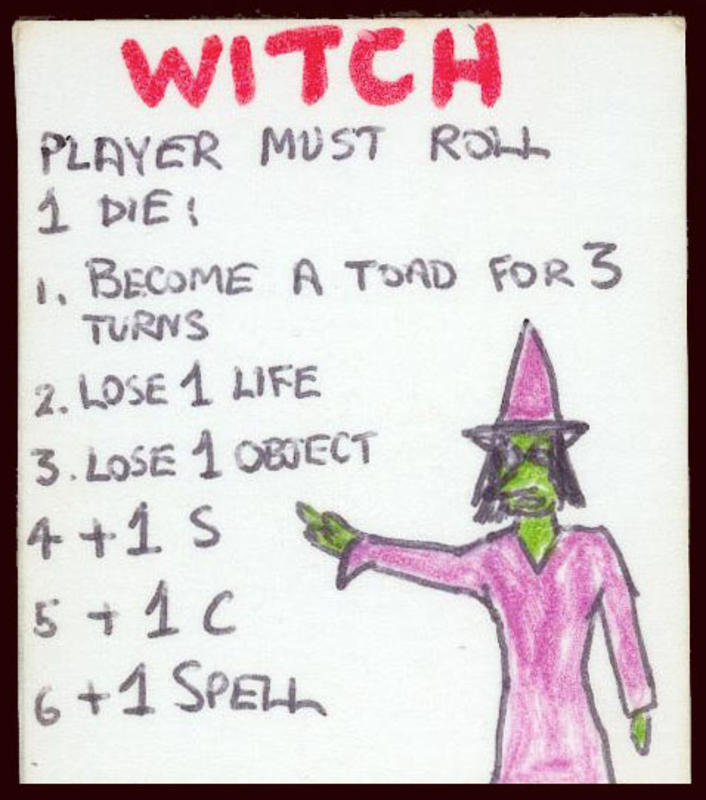 WITCH
PLAYER MUST ROLL
1 DIE!
1. BECOME A TOAD FOR 3
TURNS
2. LOSE 1 LIFE
3. LOSE 1 OBJECT
4 +1 S
5 +1 C
6 +1 SPELL